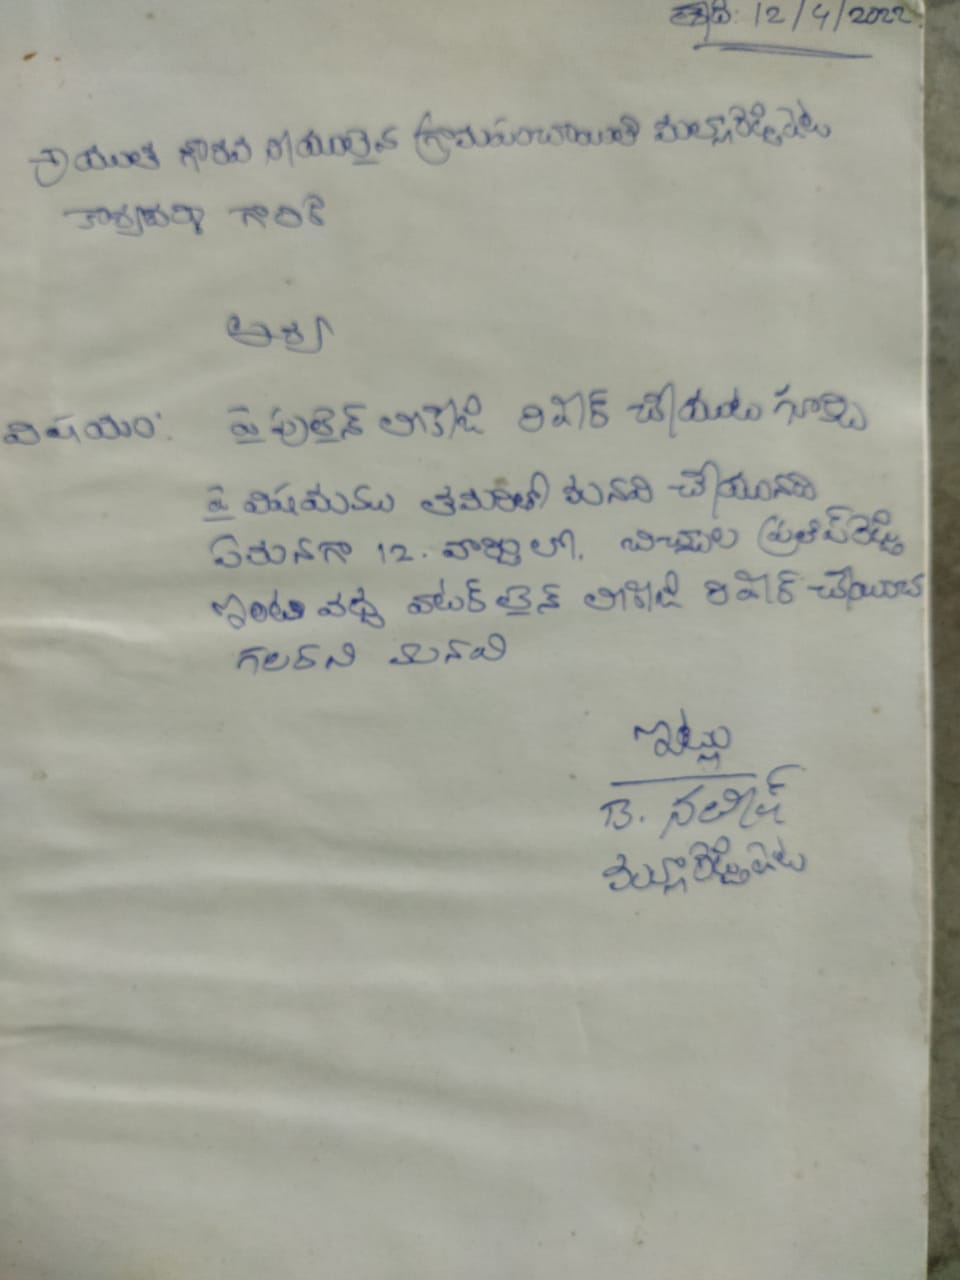 తేది: 12/4/2022
శ్రీయుత గౌరవ నీయులైన గ్రామపంచాయితీ మల్లారెడ్డిపేట
కార్యదర్శి గారికి
ఆర్య
విషయం: పైపులైన్ లీకేజి రిపేర్ చేయుట గూర్చి
పై విషయము తమరితో మనవి చేయునది
ఏమనగా 12. వార్డులో. ప్రతాప్‌రెడ్డి
ఇంటి వద్ద వాటర్ లైన్ లీకేజి రిపేర్ చేయించ
గలరని మనవి
ఇట్లు
B. సతీష్
మల్లారెడ్డిపేట